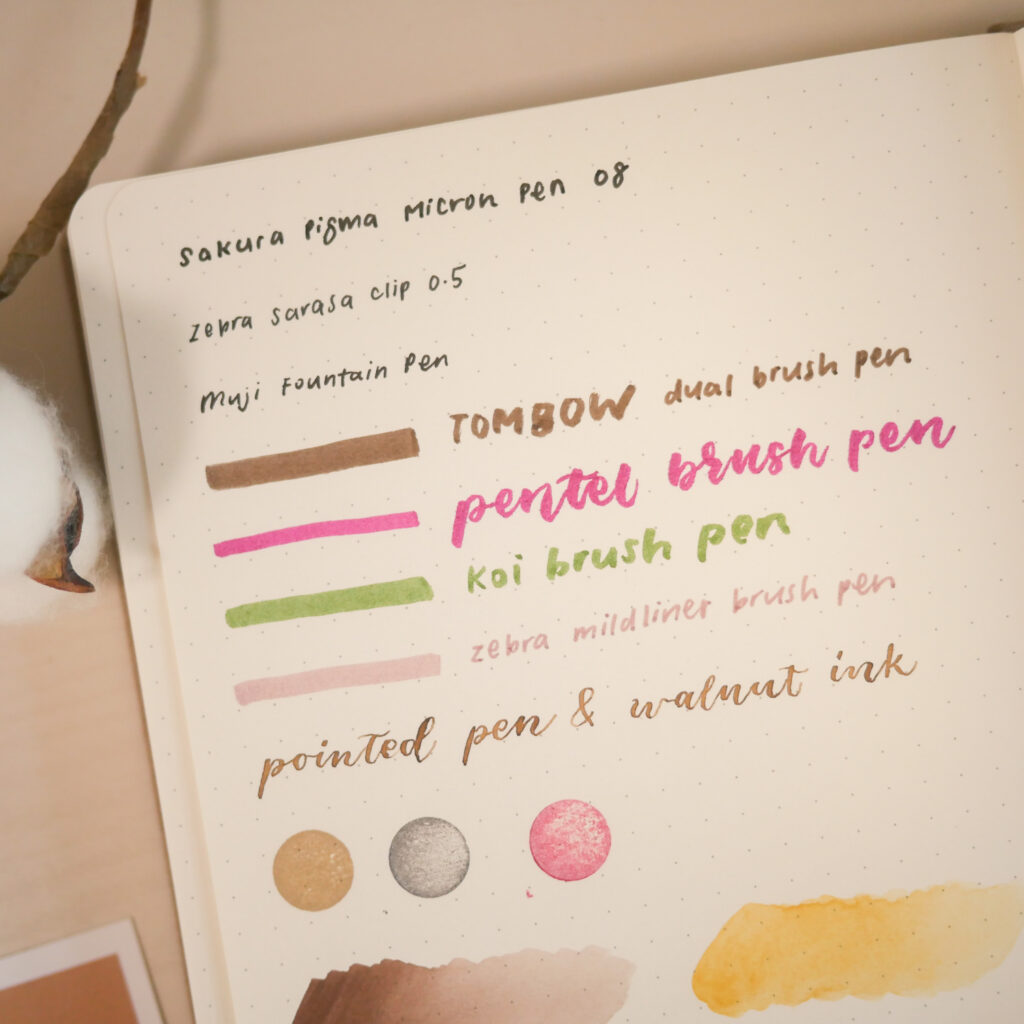 sakura pigma micron pen 08
zebra sarasa clip 0.5
muji fountain pen
TOMBOW dual brush pen
pentel brush pen
koi brush pen
zebra mildliner brush pen
pointed pen & walnut ink